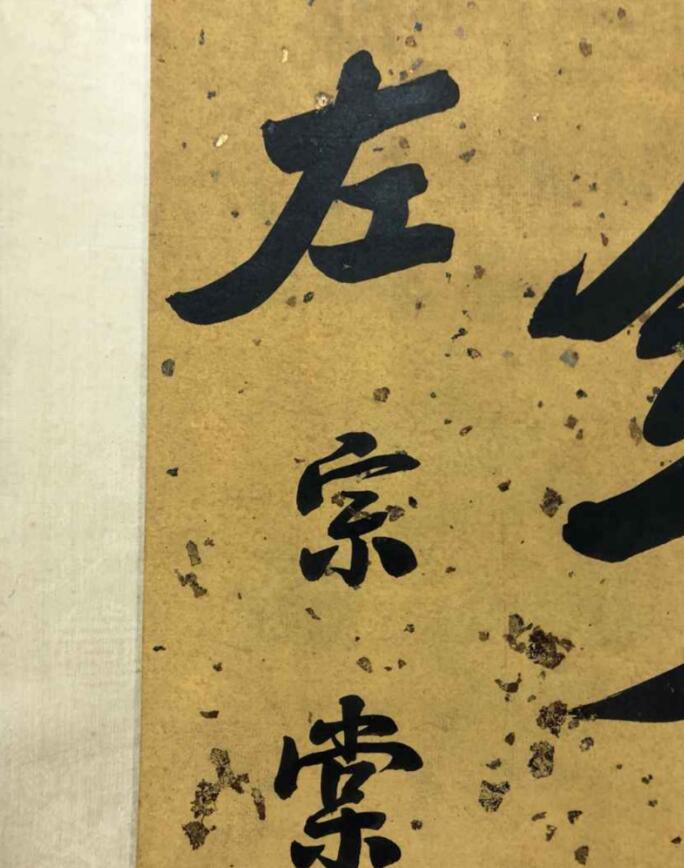 左宗棠